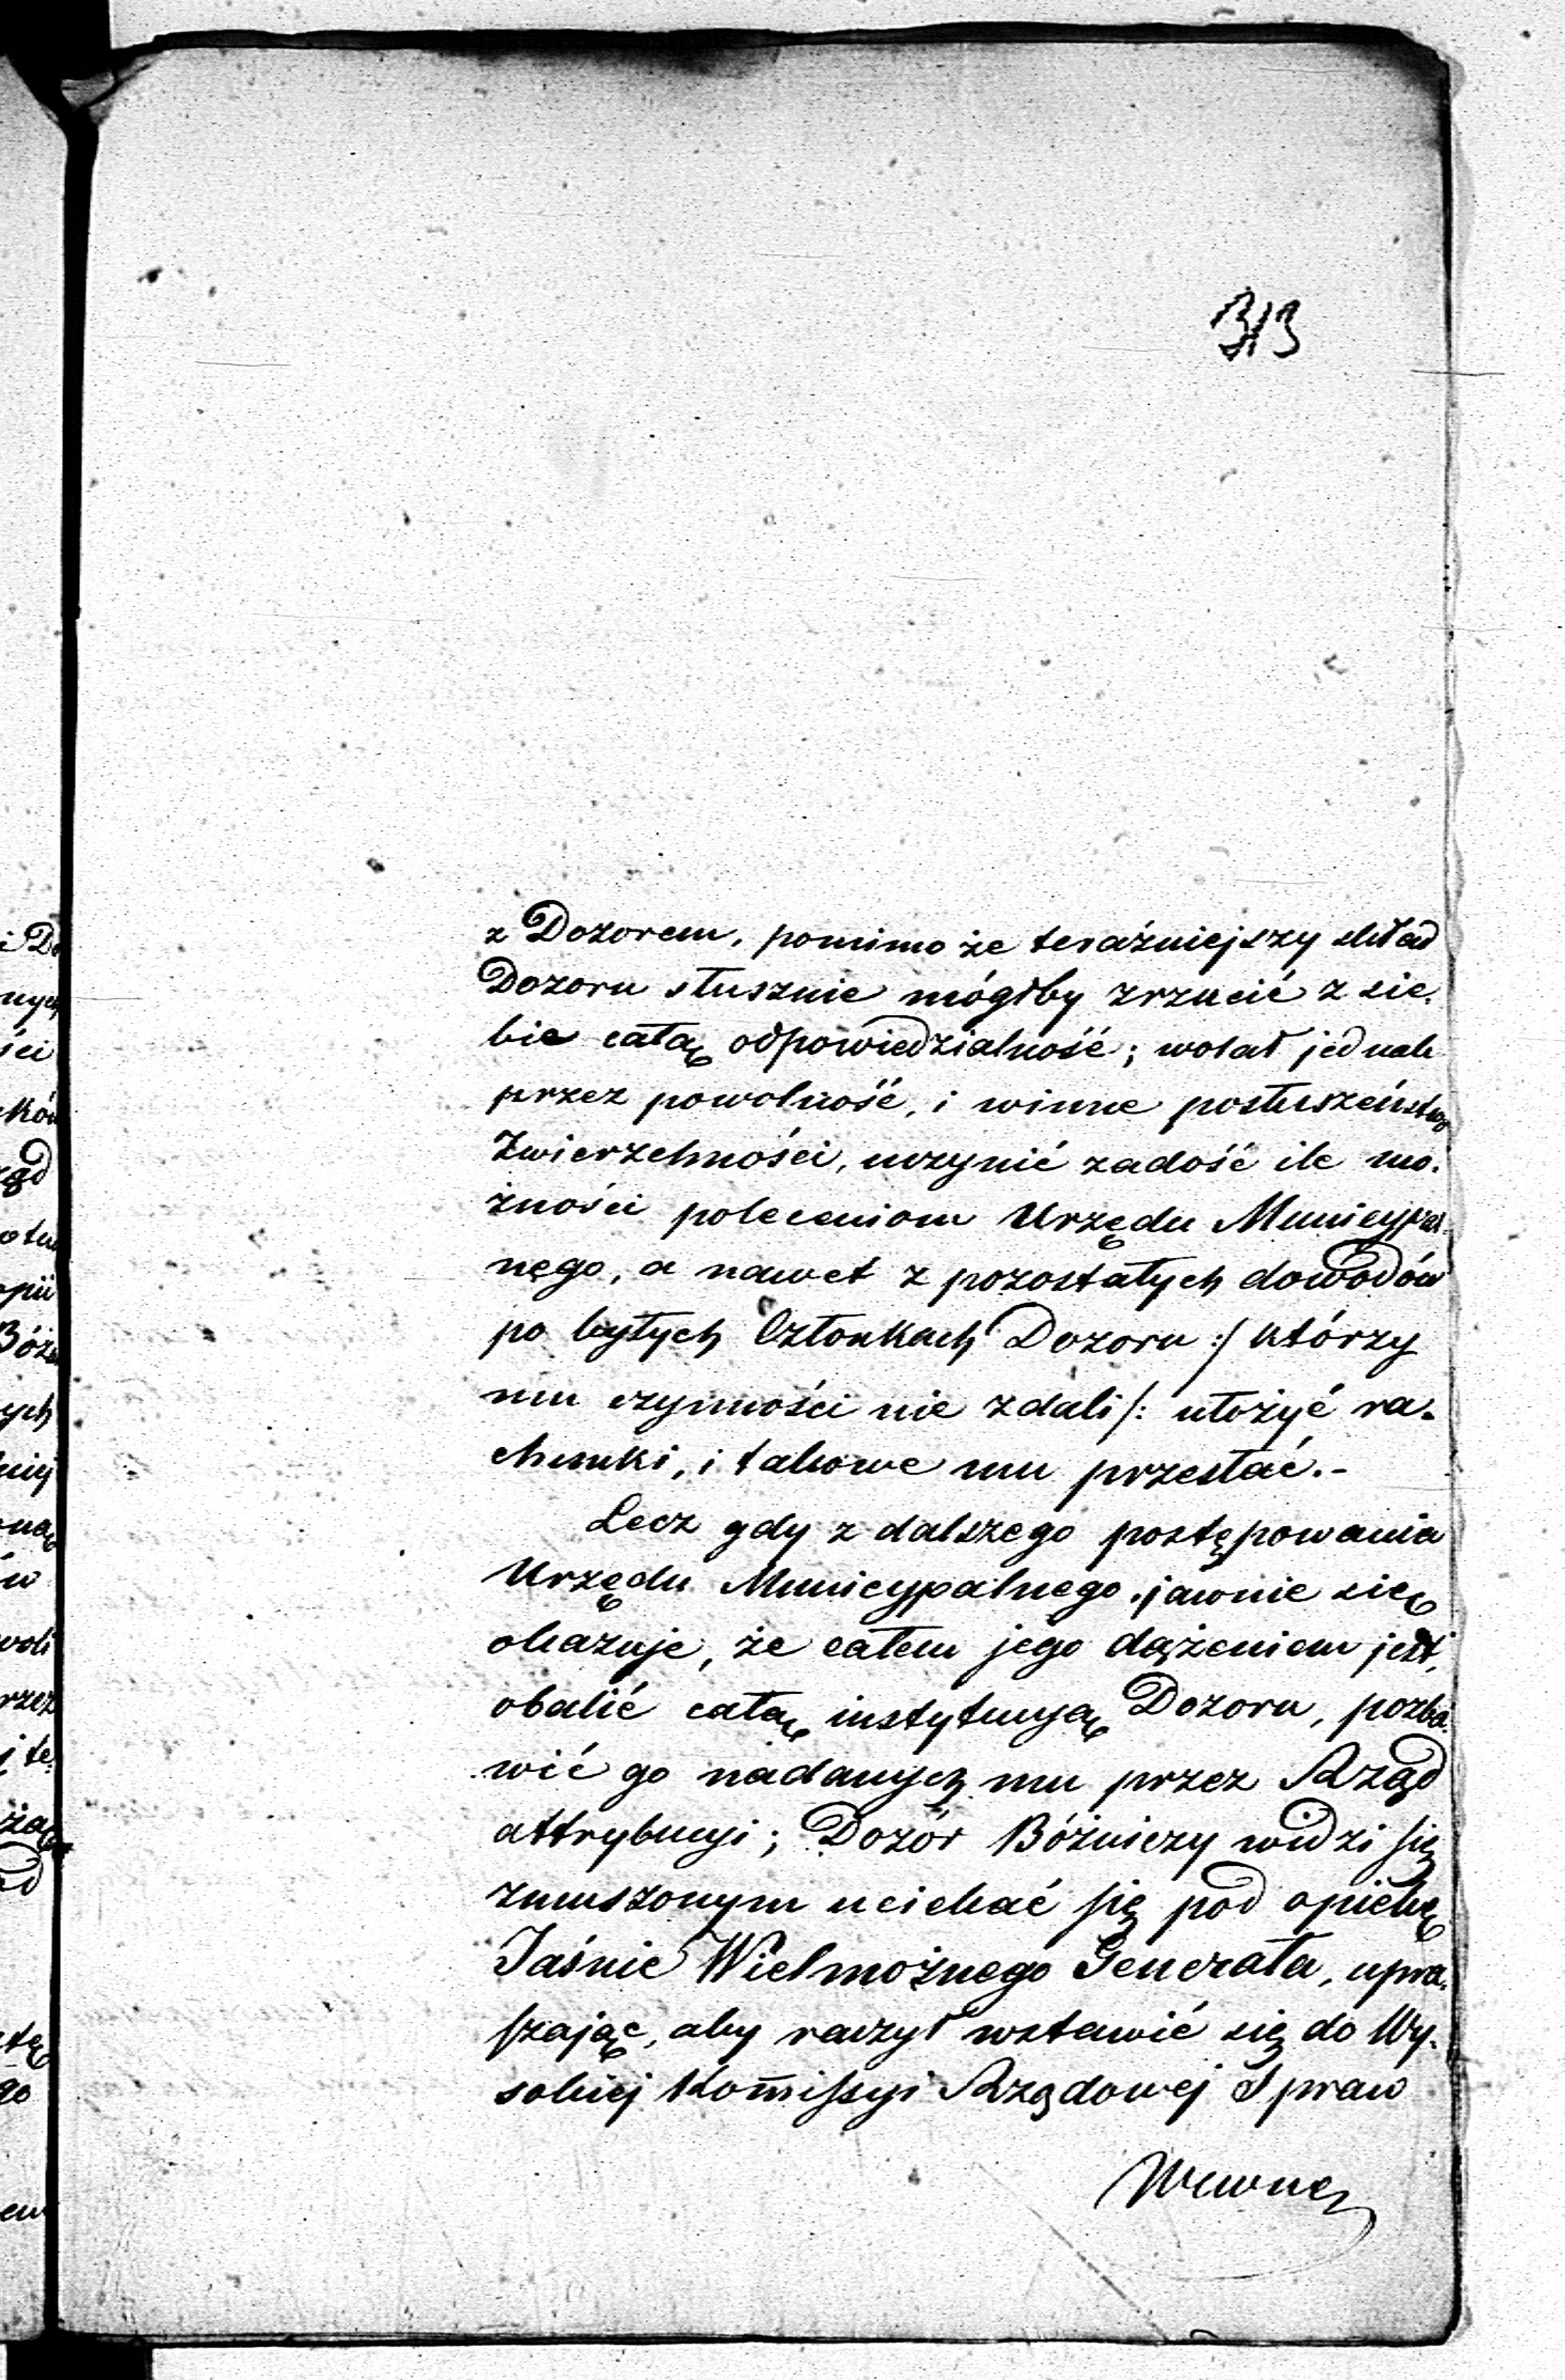 313
z Dozorem, pomimo że teraźniejszy skład
Dozoru słusznie mógłby zrzucić z sie-
bie całą odpowiedzialność; wolał jednak
przez powolność, i winne posłuszeństwo
Zwierzchności, uczynić zadość ile mo-
żności poleceniom Urzędu Municypal-
nego, a nawet z pozostałych dowodów
po byłych Członkach Dozoru :/ którzy
mu czynności nie zdali /: ułożyć ra-
chunki, i takowe mu przesłać.-
Lecz gdy z dalszego postępowania
Urzędu Municypalnego jawnie się
okazuje, że całem jego dążeniem jest,
obalić całą instytucyą Dozoru, pozba-
wić go nadanych mu przez Rząd
attrybucyi; Dozór Bóżniczy widzi się
zmuszonym uciekać się pod opiekę
Jaśnie Wielmożnego Generała, upra-
szając, aby raczył wstawić się do Wy-
sokiej Kom̄issyi Rządowej Spraw
Wewnę